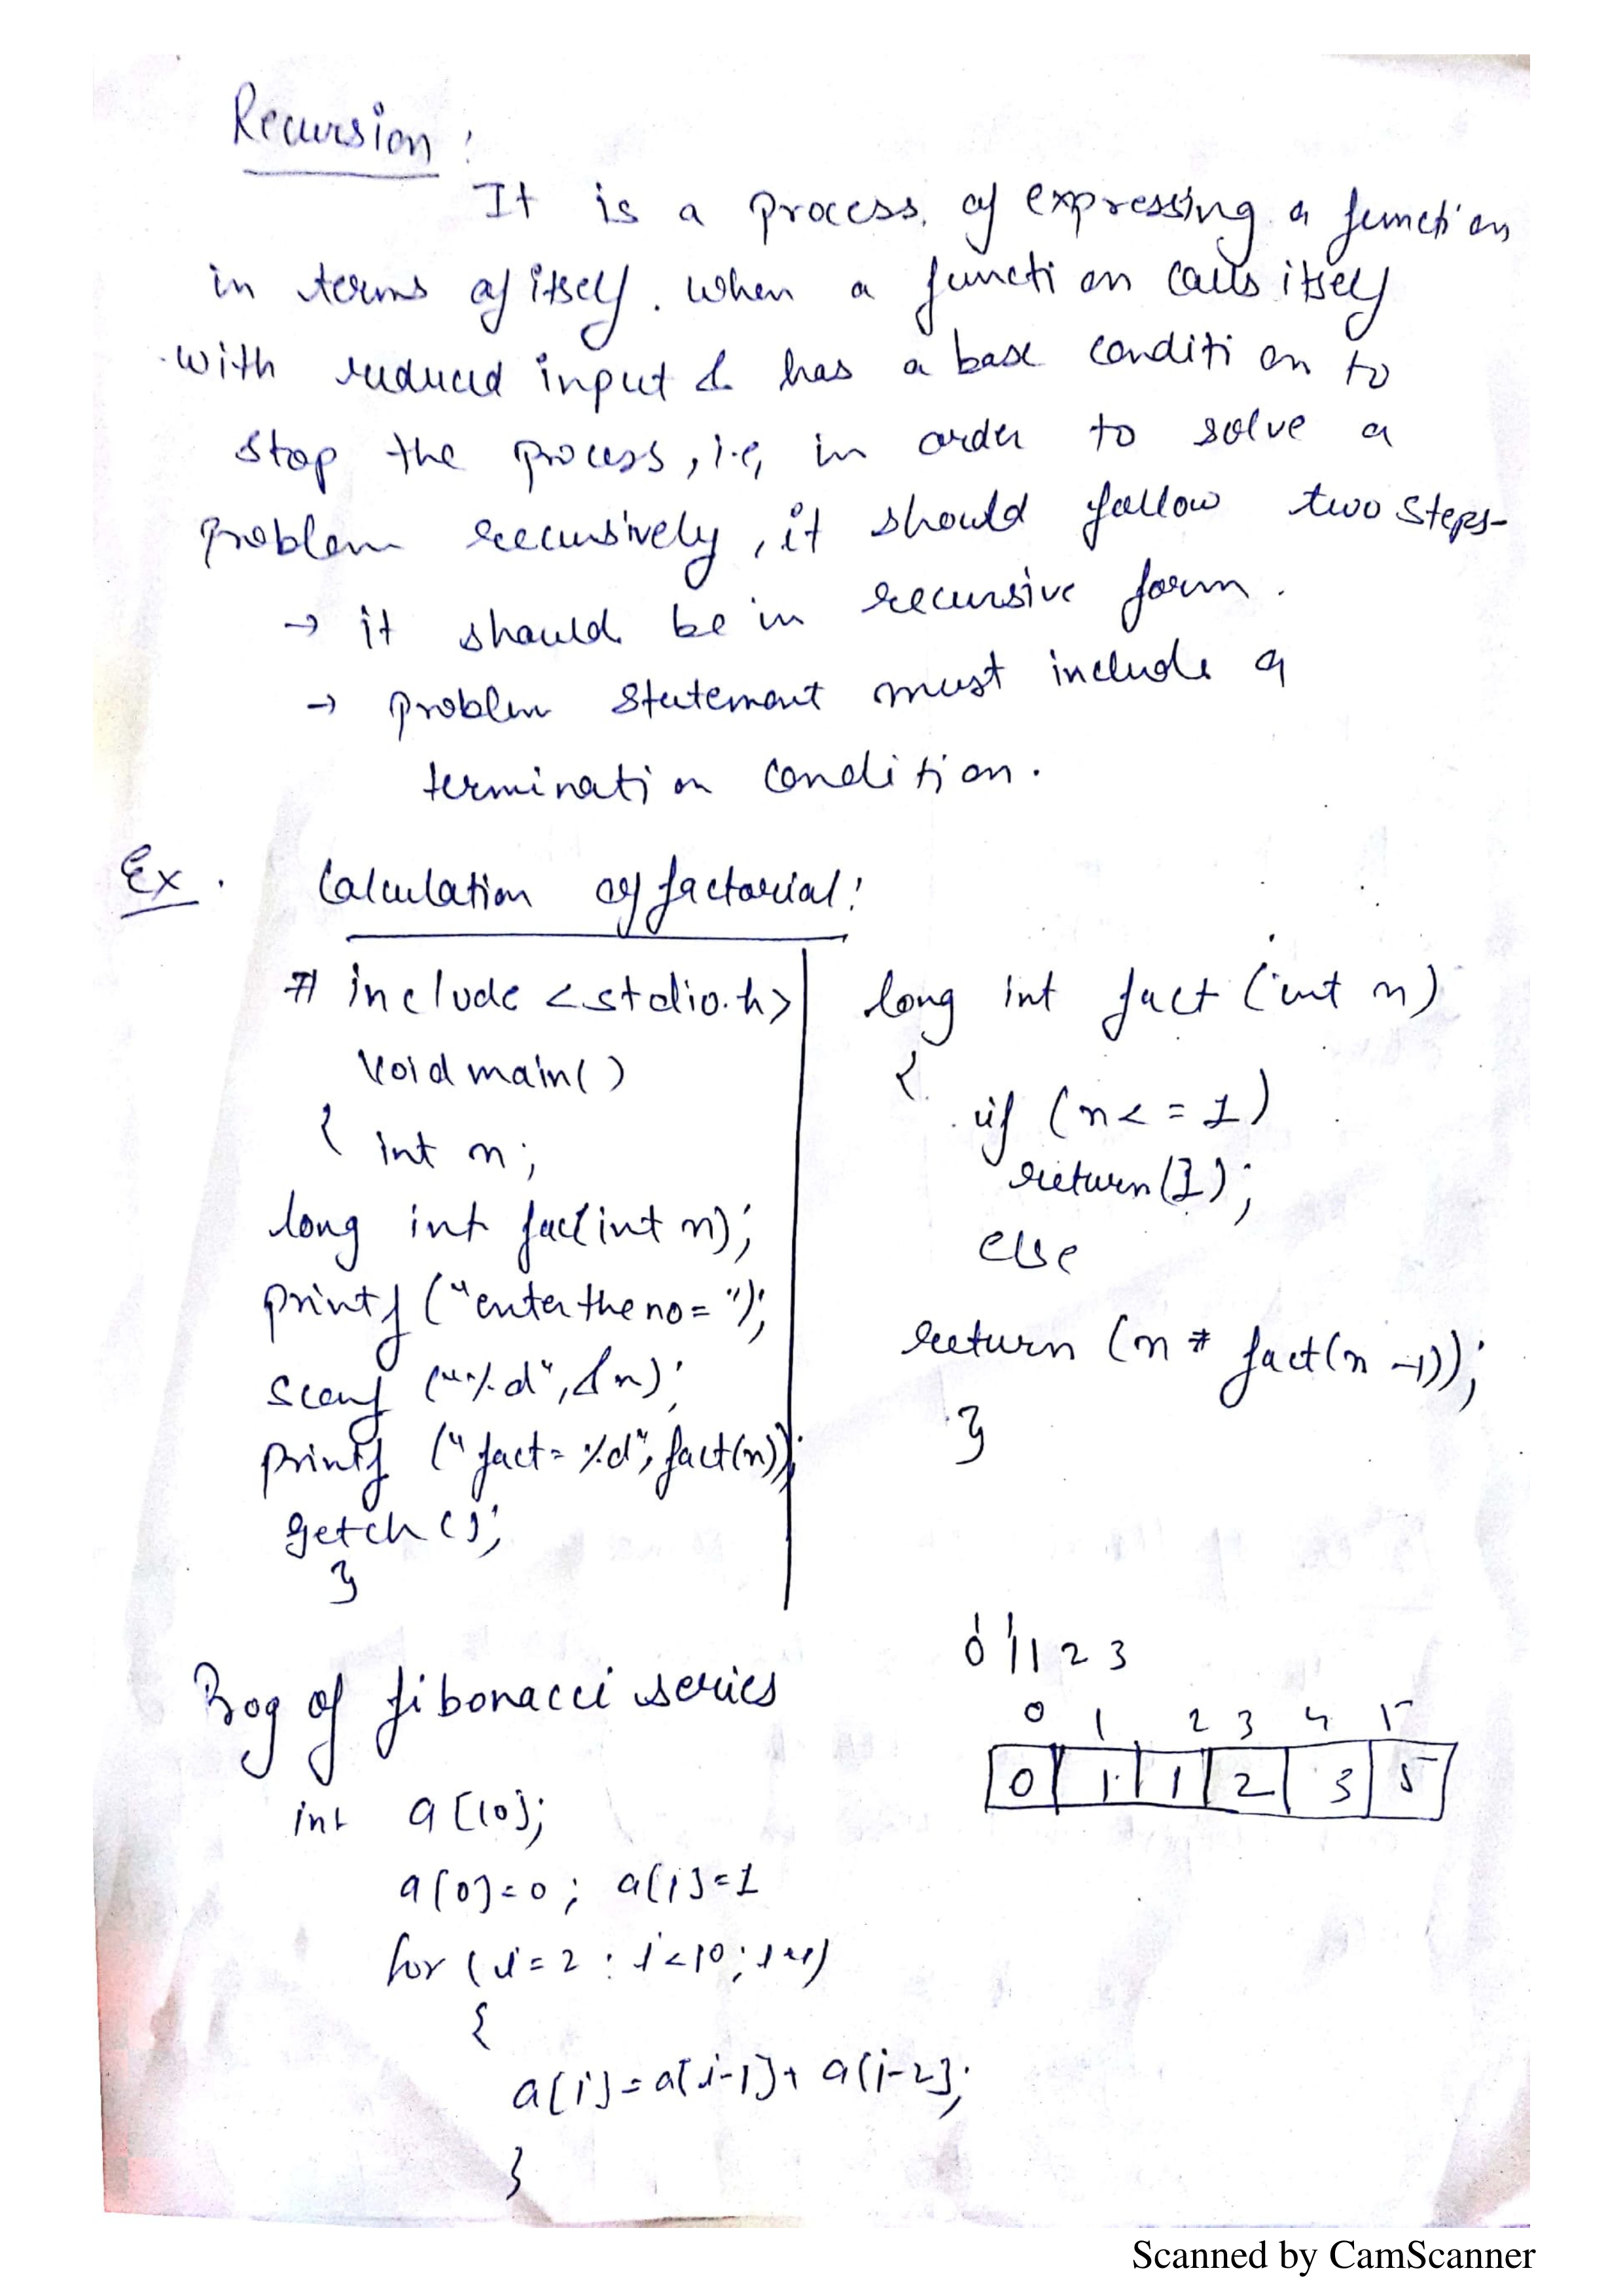 Recursion:
It is a process of expressing a function
in terms of itself. When a function calls itself
with reduced input & has a base condition to
stop the process, i.e, in order to solve a
problem recursively, it should follow two steps-
→ it should be in recursive form.
→ problem statement must include a
termination condition.
Ex. Calculation of factorial:
# include <stdio.h>
void main()
{ int n;
long int fact(int n);
printf ("enter the no = ");
scanf ("%d", &n);
printf ("fact = %d", fact(n));
getch();
}
long int fact (int n)
{
if (n <= 1)
return(1);
else
return (n * fact(n-1));
}
Prog of fibonacci series
int a[10];
a[0]=0; a[1]=1
for (i=2; i<10; i++)
{
a[i]=a[i-1]+ a[i-2];
}
0 1 1 2 3
0 1 2 3 4 5
0 1 1 2 3 5
Scanned by CamScanner